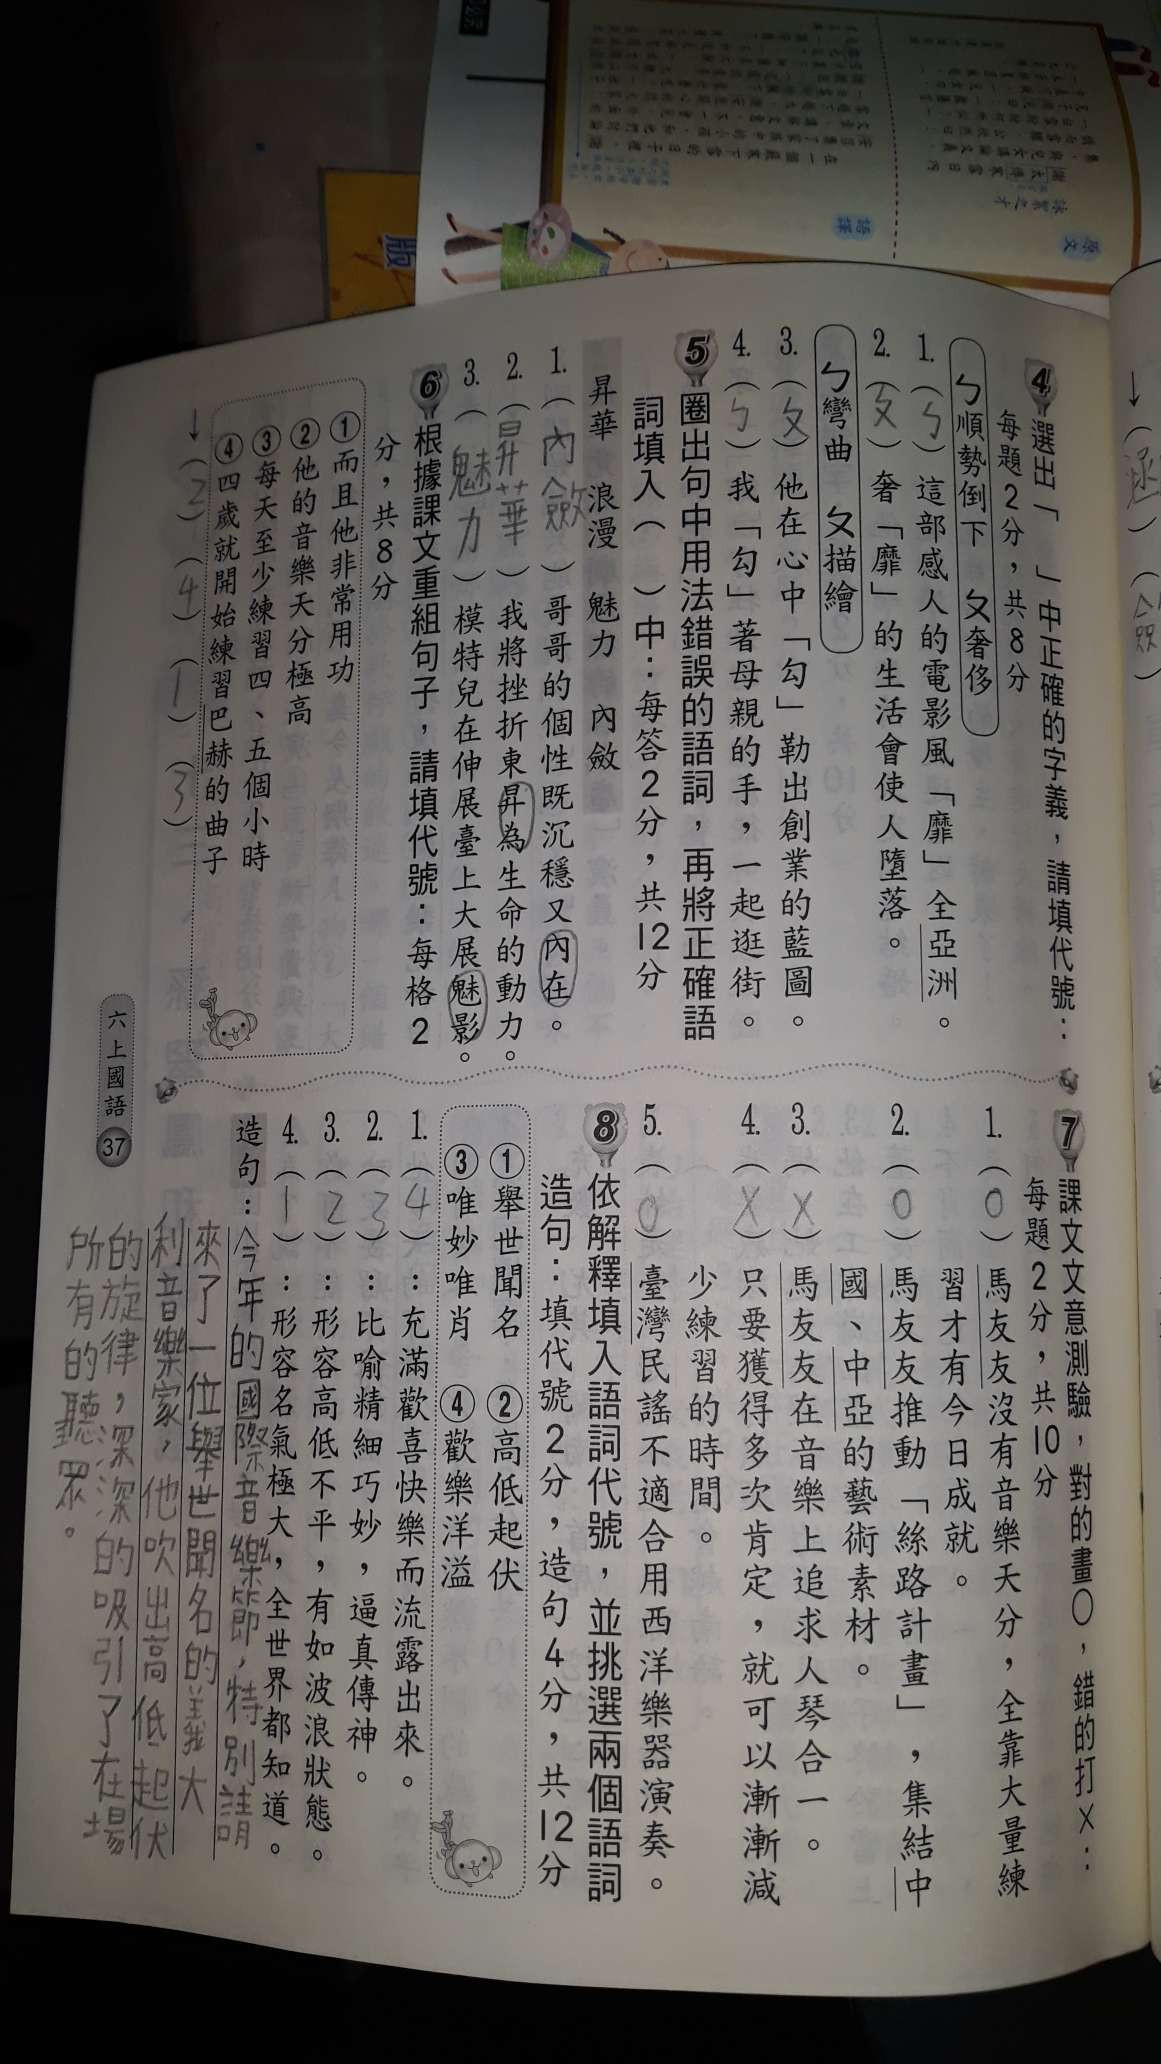 4 選出「 」中正確的字義，請填代號：
每題2分，共8分
ㄅ順勢倒下 ㄆ奢侈
1.（ㄅ）這部感人的電影風「靡」全亞洲。
2.（ㄆ）奢「靡」的生活會使人墮落。
ㄅ彎曲 ㄆ描繪
3.（ㄆ）他在心中「勾」勒出創業的藍圖。
4.（ㄅ）我「勾」著母親的手，一起逛街。
5 圈出句中用法錯誤的語詞，再將正確語
詞填入（ ）中：每答2分，共12分
昇華 浪漫 魅力 內斂
1.（內斂）哥哥的個性既沉穩又內在。
2.（昇華）我將挫折東昇為生命的動力。
3.（魅力）模特兒在伸展臺上大展魅影。
6 根據課文重組句子，請填代號：每格2
分，共8分
①而且他非常用功
②他的音樂天分極高
③每天至少練習四、五個小時
④四歲就開始練習巴赫的曲子
→（2）（4）（1）（3）
7 課文文意測驗，對的畫○，錯的打×：
每題2分，共10分
1.（○）馬友友沒有音樂天分，全靠大量練
習才有今日成就。
2.（○）馬友友推動「絲路計畫」，集結中
國、中亞的藝術素材。
3.（×）馬友友在音樂上追求人琴合一。
4.（×）只要獲得多次肯定，就可以漸漸減
少練習的時間。
5.（○）臺灣民謠不適合用西洋樂器演奏。
8 依解釋填入語詞代號，並挑選兩個語詞
造句：填代號2分，造句4分，共12分
①舉世聞名 ②高低起伏
③唯妙唯肖 ④歡樂洋溢
1.（4）：充滿歡喜快樂而流露出來。
2.（3）：比喻精細巧妙，逼真傳神。
3.（2）：形容高低不平，有如波浪狀態。
4.（1）：形容名氣極大，全世界都知道。
造句：今年的國際音樂節，特別請
來了一位舉世聞名的義大
利音樂家，他吹出高低起伏
的旋律，深深的吸引了在場
所有的聽眾。
六上國語 37
版
原文
語譯
詠絮之才